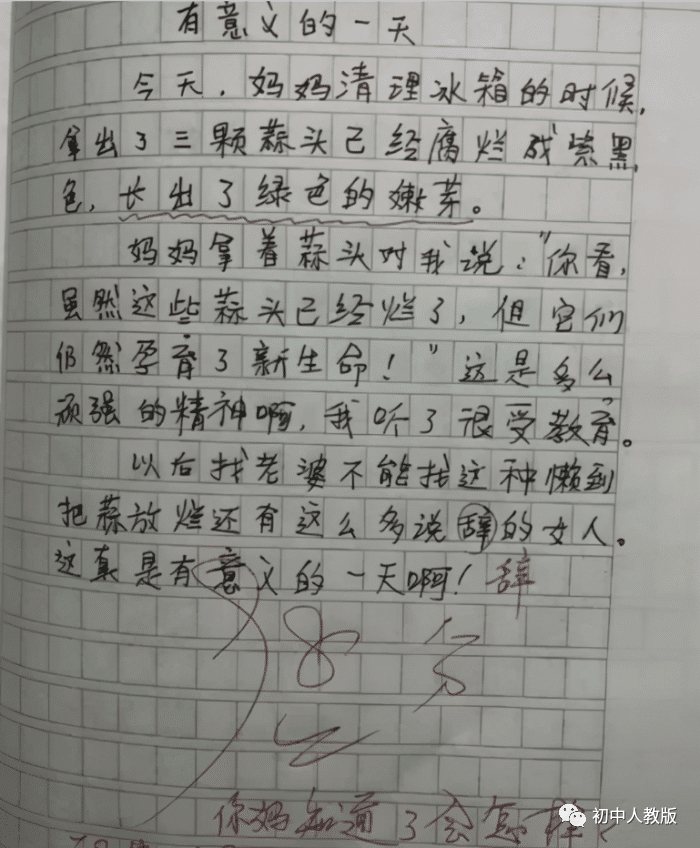 有意义的一天
今天，妈妈清理冰箱的时候，
拿出了三颗蒜头已经腐烂成紫黑
色，长出了绿色的嫩芽。
妈妈拿着蒜头对我说："你看，
虽然这些蒜头已经烂了，但它们
仍然孕育了新生命！"这是多么
顽强的精神啊，我听了很受教育。
以后找老婆不能找这种懒到
把蒜放烂还有这么多说辞的女人。
这真是有意义的一天啊！辞
28分
你妈知道了会怎样？
初中人教版